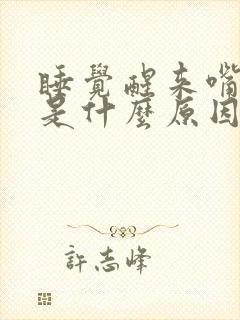 睡覺醒來嘴
是什麼原因
許志峰